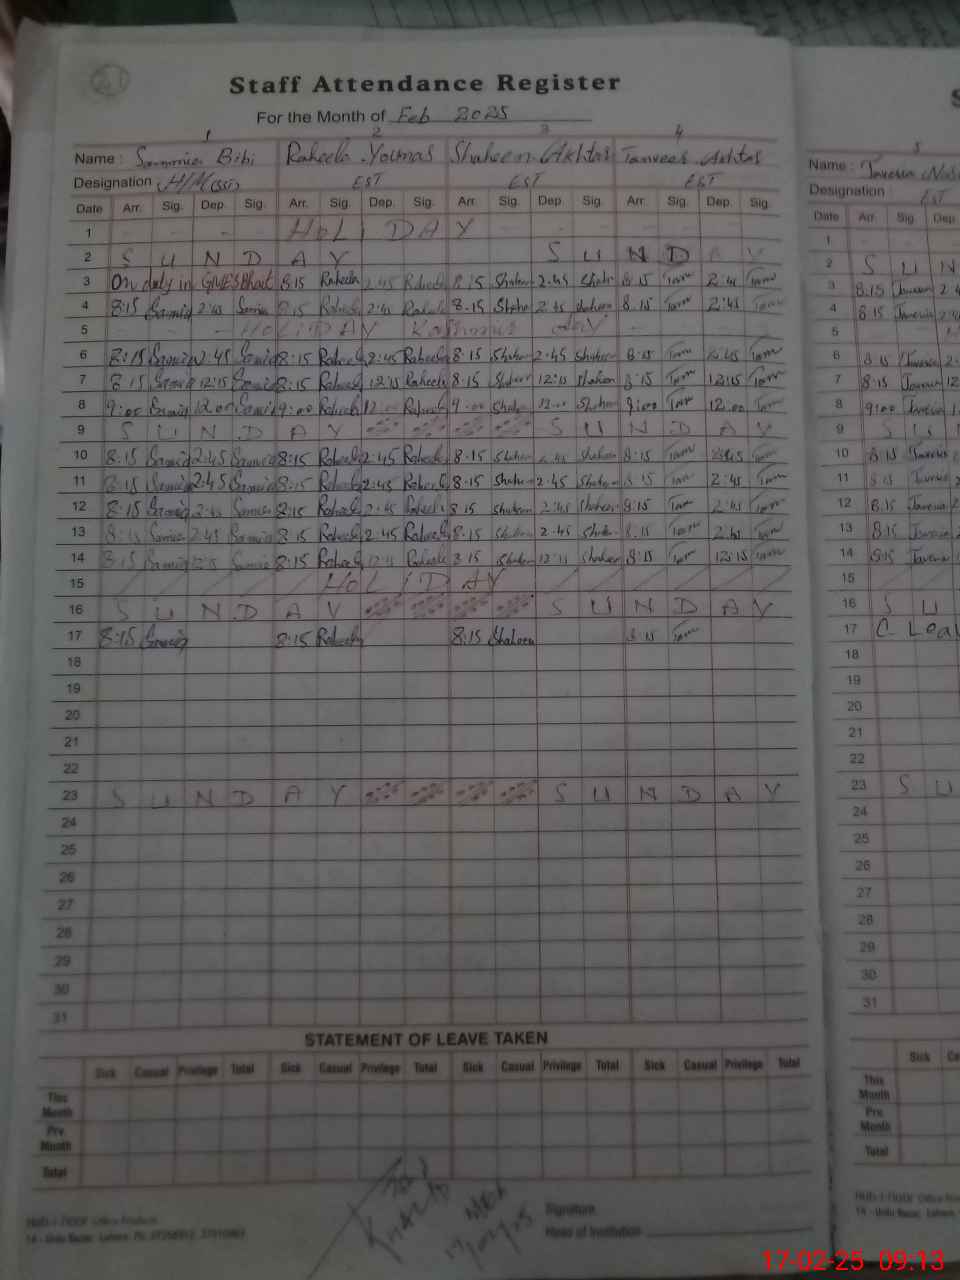 Staff Attendance Register
For the Month of Feb 2025
1 2 3 4
Name : Sammina Bibi Raheela Younas Shaheen Akhtar Tanveer Akhtar
Designation EST EST EST
Date Arr. Sig. Dep. Sig. Arr. Sig. Dep. Sig. Arr. Sig. Dep. Sig. Arr. Sig. Dep. Sig.
1 HOLIDAY
2 SUNDAY SUNDAY
3 On duty in 8:15 Raheela 2.45 Raheela 8:15 Shaheen 2.45 Shaheen 8:15 2:45
4 8:15 Samina 2:45 Samina 8:15 Raheela 2:45 Raheela 8.15 Shaheen 2.45 Shaheen 8.15 2:45
5 HOLIDAY Kashmir Day
6 8:15 Samina 2:45 Samina 8:15 Raheela 2:45 Raheela 8.15 Shaheen 2.45 Shaheen 8:15 2:45
7 8:15 Samina 12:15 Samina 8:15 Raheela 12:15 Raheela 8.15 Shaheen 12:15 Shaheen 8:15 12:15
8 9:00 Samina 12:00 Samina 9:00 Raheela 12:00 Raheela 9.00 Shaheen 12.00 Shaheen 9:00 12:00
9 SUNDAY SUNDAY
10 8:15 Samina 2:45 Samina 8:15 Raheela 2.45 Raheela 8.15 Shaheen 2.45 Shaheen 8:15 2:45
11 8:15 Samina 2:45 Samina 8:15 Raheela 2:45 Raheela 8.15 Shaheen 2.45 Shaheen 8:15 2:45
12 8:15 Samina 2:45 Samina 8:15 Raheela 2:45 Raheela 8.15 Shaheen 2:45 Shaheen 8:15 2:45
13 8:15 Samina 2.45 Samina 8:15 Raheela 2.45 Raheela 8.15 Shaheen 2.45 Shaheen 8.15 2:45
14 8:15 Samina Samina 8:15 Raheela 12:15 Raheela 8:15 Shaheen 12:15 Shaheen 8:15 12:15
15 HOLIDAY
16 SUNDAY SUNDAY
17 8:15 Samina 8:15 Raheela 8:15 Shaheen 8:15
18
19
20
21
22
23 SUNDAY SUNDAY
24
25
26
27
28
29
30
31
STATEMENT OF LEAVE TAKEN
Sick Casual Privilege Total Sick Casual Privilege Total Sick Casual Privilege Total Sick Casual Privilege Total
This Month
Prv. Month
Total
Signature
Head of Institution
S
5
Name :
Designation EST
Date Arr. Sig. Dep
1
2 SUN
3 8.15
4 8.15
5
6 8.15
7 8:15 12
8 9:00
9 SU
10 8.15
11 8:15
12 8.15
13 8:15
14 8:15
15
16 SU
17 C. Lea
18
19
20
21
22
23 SU
24
25
26
27
28
29
30
31
Sick Ca
This Month
Prv. Month
Total
17-02-25 09:13